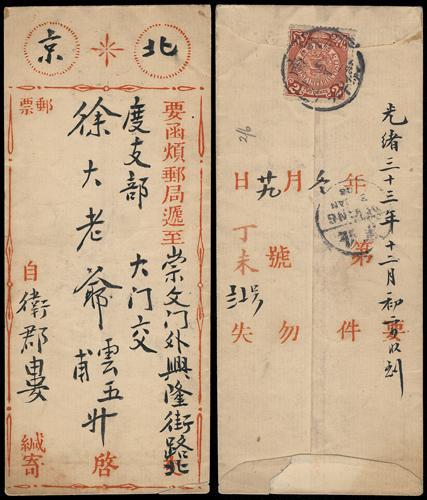 北京
要函煩郵局遞至崇文门外興隆街路北
度支部 大门交
徐大老爺 雲五 升 甫 啓
郵票
自衛郡由安
緘寄
光緒三十三年十二月初二日收到
2/6
年冬月廿九日
丁未
第 號
要件勿失
PEKING
JAN
2